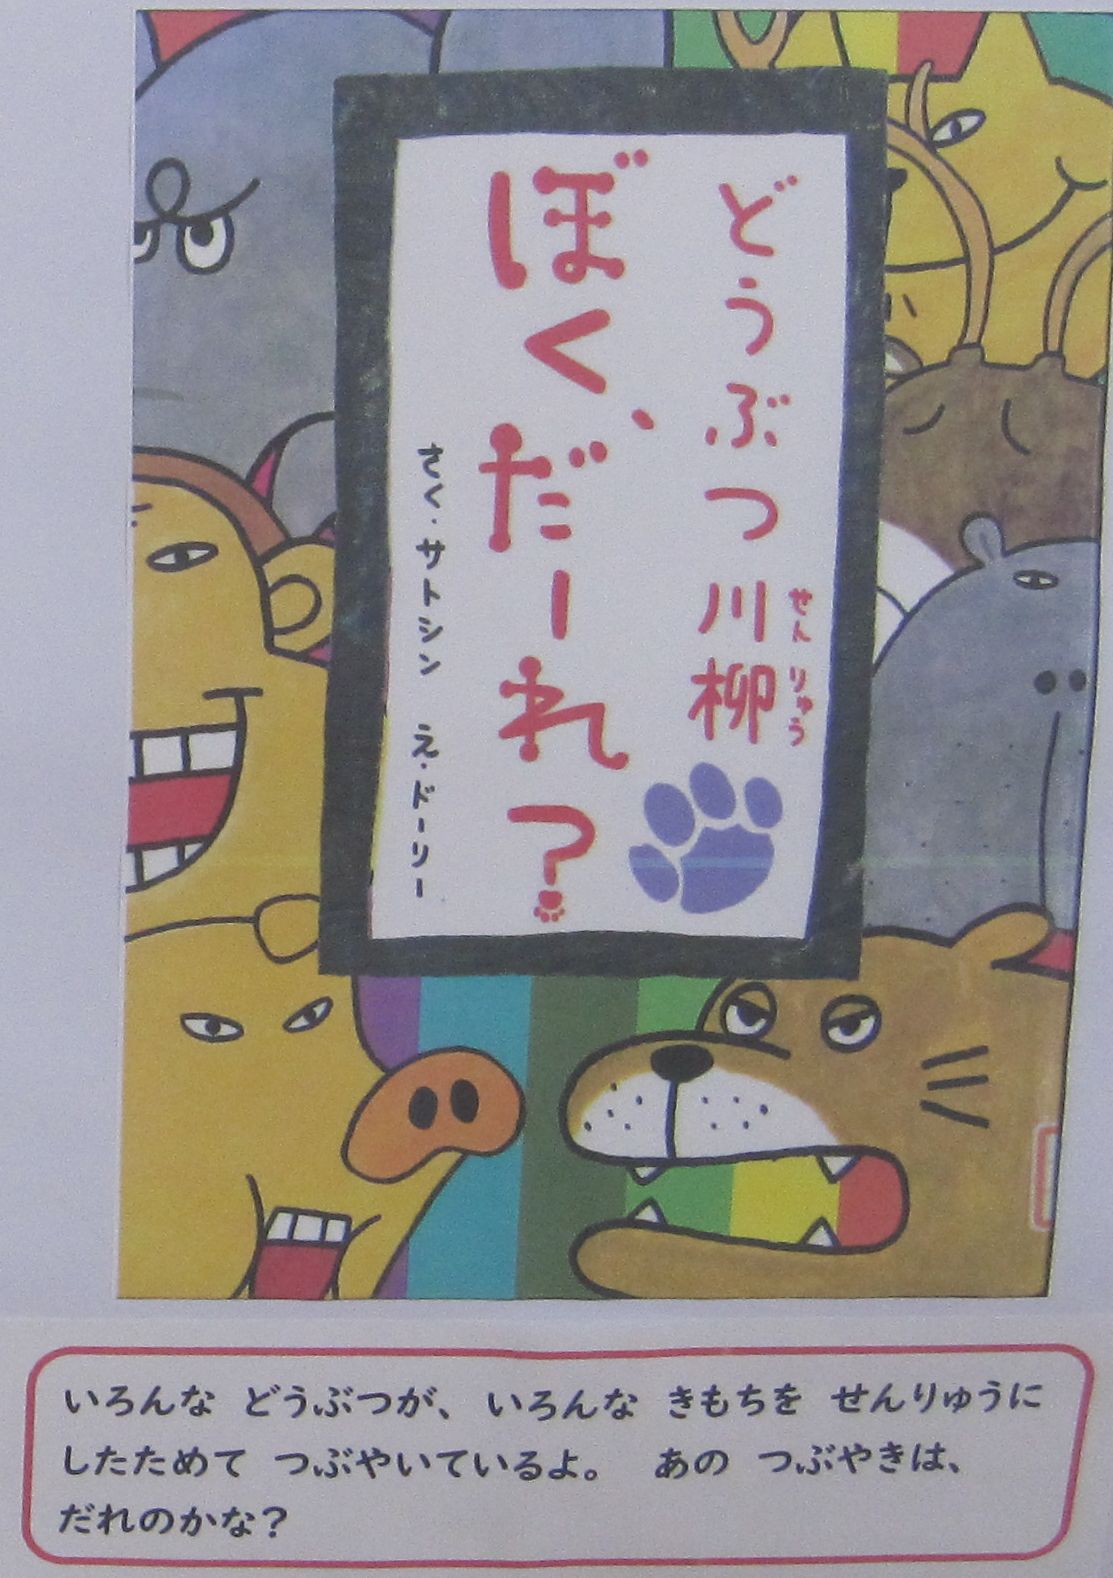 どうぶつ川柳
せんりゅう
ぼく、だーれ?
さく・サトシン え・ドーリー
いろんな どうぶつが、いろんな きもちを せんりゅうに
したためて つぶやいているよ。 あの つぶやきは、
だれのかな?